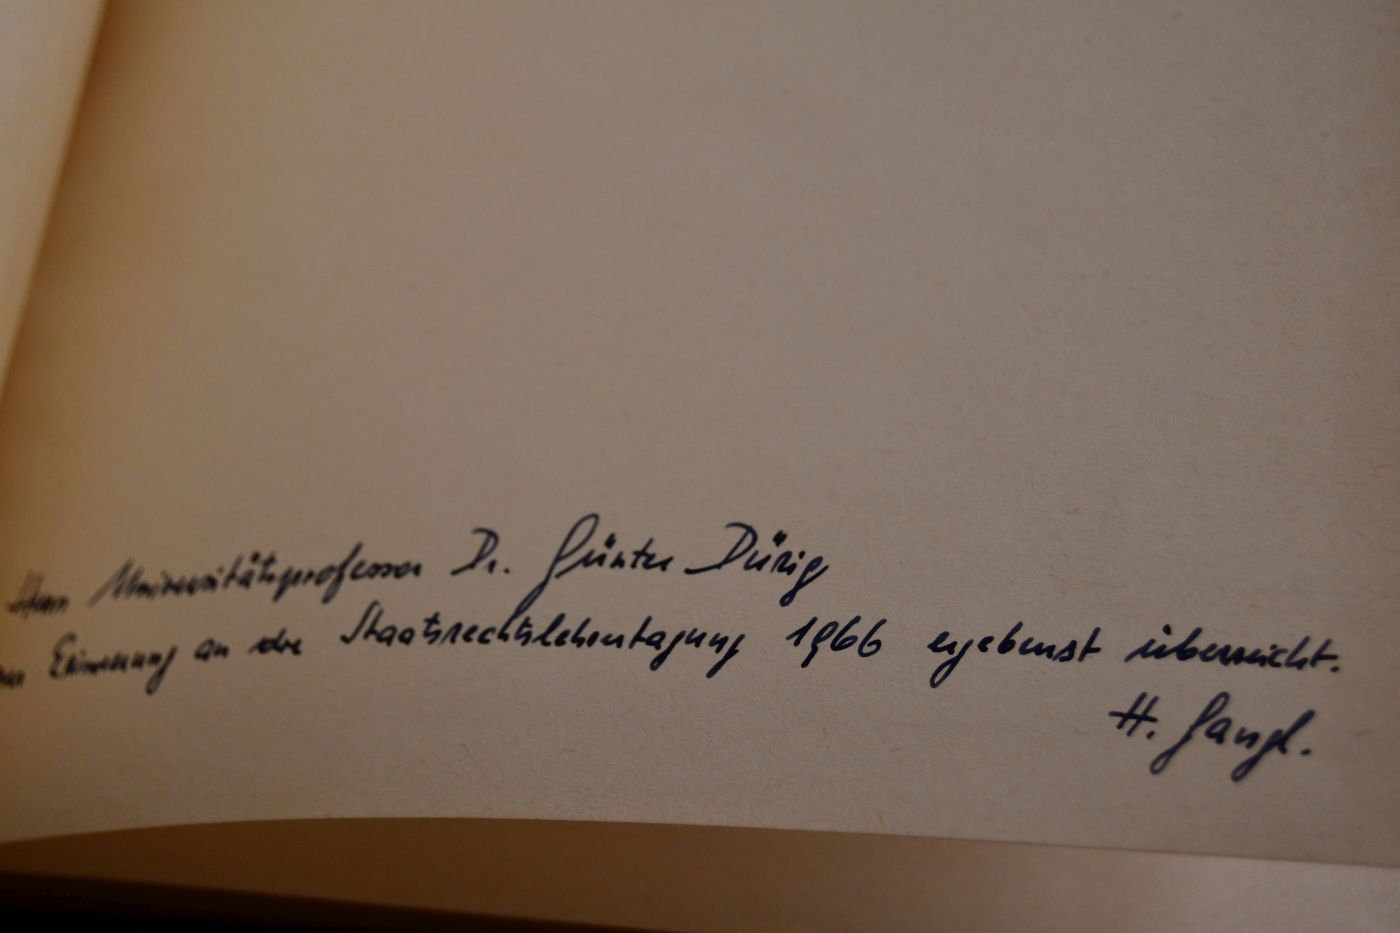 Herrn Universitätsprofessor Dr. Günter Dürig
zur Erinnerung an die Staatsrechtslehrertagung 1966 ergebenst überreicht.
H. Gangl.